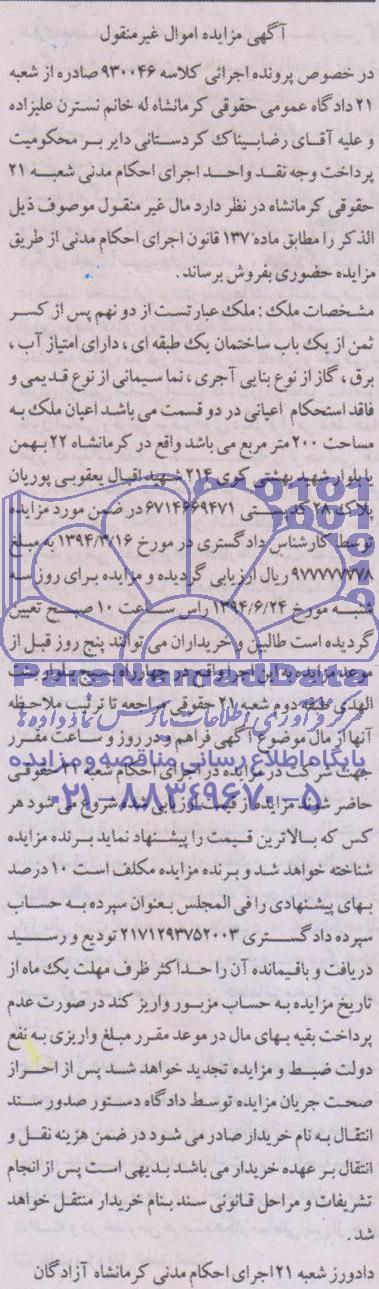 آگهی مزایده اموال غیرمنقول
در خصوص پرونده اجرائی کلاسه ۹۳۰۰۴۶ صادره از شعبه
۲۱ دادگاه عمومی حقوقی کرمانشاه له خانم نسترن علیزاده
و علیه آقای رضابیناک کردستانی دایر بر محکومیت
پرداخت وجه نقد واحد اجرای احکام مدنی شعبه ۲۱
حقوقی کرمانشاه در نظر دارد مال غیر منقول موصوف ذیل
الذکر را مطابق ماده ۱۳۷ قانون اجرای احکام مدنی از طریق
مزایده حضوری بفروش برساند.
مشخصات ملک: ملک عبارتست از دو نهم پس از کسر
ثمن از یک باب ساختمان یک طبقه ای، دارای امتیاز آب،
برق، گاز از نوع بنایی آجری، نما سیمانی از نوع قدیمی و
فاقد استحکام اعیانی در دو قسمت می باشد اعیان ملک به
مساحت ۲۰۰ متر مربع می باشد واقع در کرمانشاه ۲۲ بهمن
بلوار شهید بهشتی کوی ۲۱۴ شهید اقبال یعقوبی پوریان
پلاک ۲۸ کد پستی ۶۷۱۴۶۶۹۴۷۱ در ضمن مورد مزایده
توسط کارشناس دادگستری در مورخ ۱۳۹۴/۳/۱۶ به مبلغ
۹۷۷۷۷۷۷۷۸ ریال ارزیابی گردیده و مزایده برای روز سه
شنبه مورخ ۱۳۹۴/۶/۲۴ راس ساعت ۱۰ صبح تعیین
گردیده است طالبین و خریداران می توانند پنج روز قبل از
موعد مزایده به این اجرا واقع در چهارراه بسیج بلوار بنت
الهدی طبقه دوم شعبه ۲۱ حقوقی مراجعه تا ترتیب ملاحظه
آنها از مال موضوع آگهی فراهم و در روز و ساعت مقرر
جهت شرکت در مزایده در اجرای احکام شعبه ۲۱ حقوقی
حاضر شوند مزایده از قیمت ارزیابی شده شروع می شود هر
کس که بالاترین قیمت را پیشنهاد نماید برنده مزایده
شناخته خواهد شد و برنده مزایده مکلف است ۱۰ درصد
بهای پیشنهادی را فی المجلس بعنوان سپرده به حساب
سپرده دادگستری ۲۱۷۱۲۹۳۷۵۲۰۰۳ تودیع و رسید
دریافت و باقیمانده آن را حداکثر ظرف مهلت یک ماه از
تاریخ مزایده به حساب مزبور واریز کند در صورت عدم
پرداخت بقیه بهای مال در موعد مقرر مبلغ واریزی به نفع
دولت ضبط و مزایده تجدید خواهد شد پس از احراز
صحت جریان مزایده توسط دادگاه دستور صدور سند
انتقال به نام خریدار صادر می شود در ضمن هزینه نقل و
انتقال بر عهده خریدار می باشد بدیهی است پس از انجام
تشریفات و مراحل قانونی سند بنام خریدار منتقل خواهد
شد.
دادورز شعبه ۲۱ اجرای احکام مدنی کرمانشاه آزادگان
ParsNamadData
مرکز فرآوری اطلاعات پارس نماد داده ها
پایگاه اطلاع رسانی مناقصه و مزایده
۰۲۱-۸۸۳۴۹۶۷۰-۵